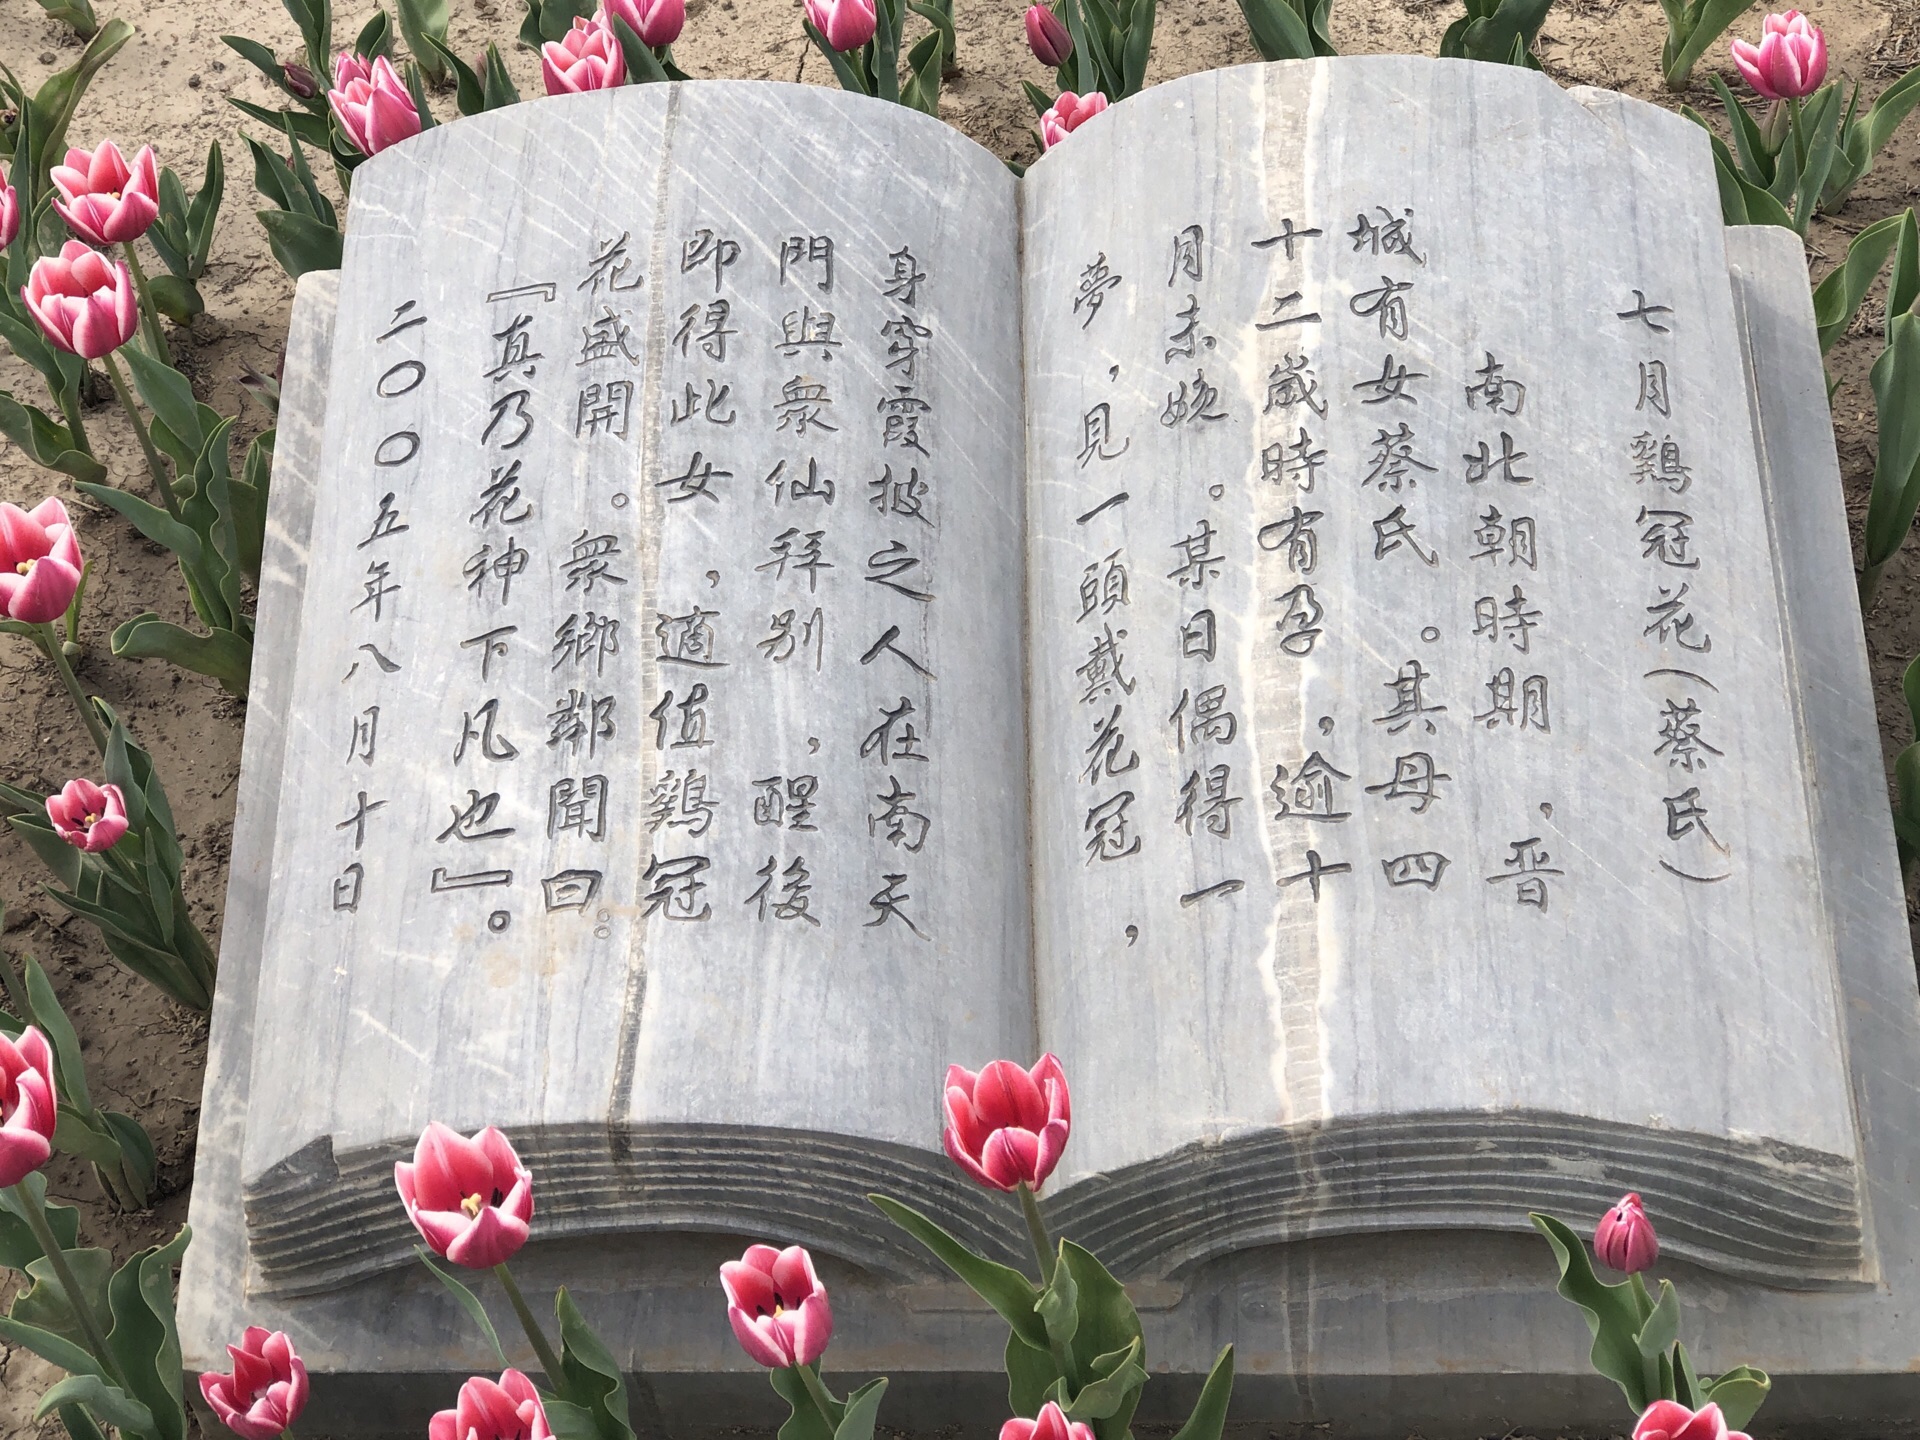 七月鷄冠花(蔡氏)
南北朝時期，晋
城有女蔡氏。其母四
十二歲時有孕，逾十
月未娩。某日偶得一
夢，見一頭戴花冠，
身穿霞披之人在南天
門與衆仙拜别，醒後
即得此女，適值鷄冠
花盛開。衆鄉鄰聞曰：
『真乃花神下凡也』。
二〇〇五年八月十日